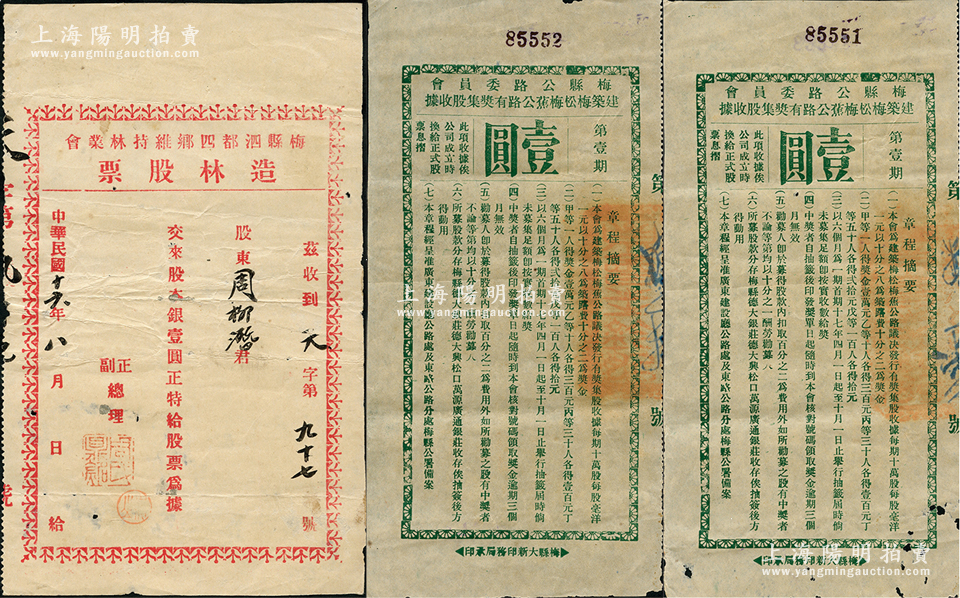 上海陽明拍賣
www.yangmingauction.com
會業林持維鄉四都泗縣梅
票股林造
茲收到
天字第九十七號
股東周
君
交來股本銀壹圓正特給股票爲據
正
副
總理
中華民國十六年八月 日給
85552
會員委路公縣梅
據收股集獎有路公蕉梅松梅築建
第壹期
壹圓
此項收據俟
公司成立時
換給正式股
票息摺
章程摘要
(一)本會爲建築梅松梅蕉公路議決發行有獎集股收據每期十萬股每股毫洋
一元以十分之八爲築路費十分之二爲獎金
(二)甲等一人得獎金壹萬元乙等十人各得三百元丙等三十人各得壹百元丁
等五十人各得弍拾元戊等一百人各得拾元
(三)以六個月爲一期首期十七年四月一日起至十月一日止舉行抽籤屆時倘
未募集足額卽按實收數給獎
(四)中獎者自抽籤後印發獎單日起隨時到本會核對號碼領取獎金逾期三個
月無效
(五)勸募人卽於募得股款內扣取百分之二爲費用外如所勸募之股有中獎者
不論等第均以十分之一酬勞勸募人
(六)所募股款分存梅縣德大銀莊德大興松口萬源廣通銀莊收存俟抽簽後方
得動用
(七)本章程經呈准廣東建設廳公路處及東路公路分處梅縣公署備案
梅縣大新印務局承印
85551
會員委路公縣梅
據收股集獎有路公蕉梅松梅築建
第壹期
壹圓
此項收據俟
公司成立時
換給正式股
票息摺
章程摘要
(一)本會爲建築梅松梅蕉公路議決發行有獎集股收據每期十萬股每股毫洋
一元以十分之八爲築路費十分之二爲獎金
(二)甲等一人得獎金壹萬元乙等十人各得三百元丙等三十人各得壹百元丁
等五十人各得弍拾元戊等一百人各得拾元
(三)以六個月爲一期首期十七年四月一日起至十月一日止舉行抽籤屆時倘
未募集足額卽按實收數給獎
(四)中獎者自抽籤後印發獎單日起隨時到本會核對號碼領取獎金逾期三個
月無效
(五)勸募人卽於募得股款內扣取百分之二爲費用外如所勸募之股有中獎者
不論等第均以十分之一酬勞勸募人
(六)所募股款分存梅縣德大銀莊德大興松口萬源廣通銀莊收存俟抽簽後方
得動用
(七)本章程經呈准廣東建設廳公路處及東路公路分處梅縣公署備案
梅縣大新印務局承印
第
號
上海陽明拍賣
www.yangmingauction.com